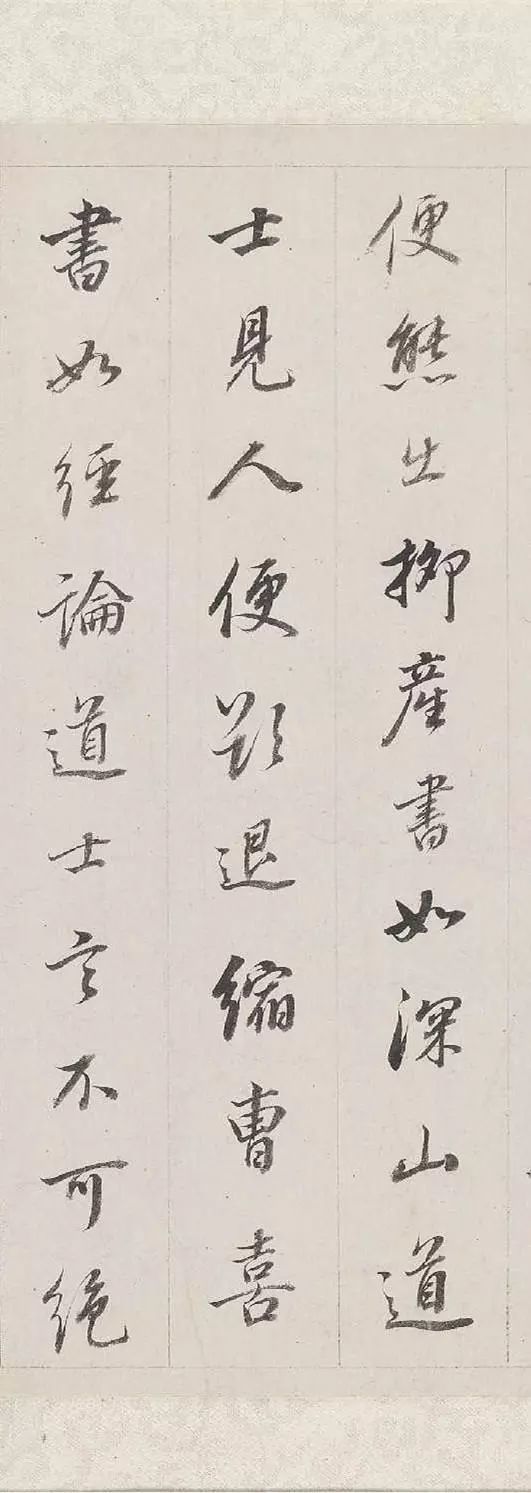 便態出柳產書如深山道
士見人便欲退縮曹喜
書如經論道士言不可絕